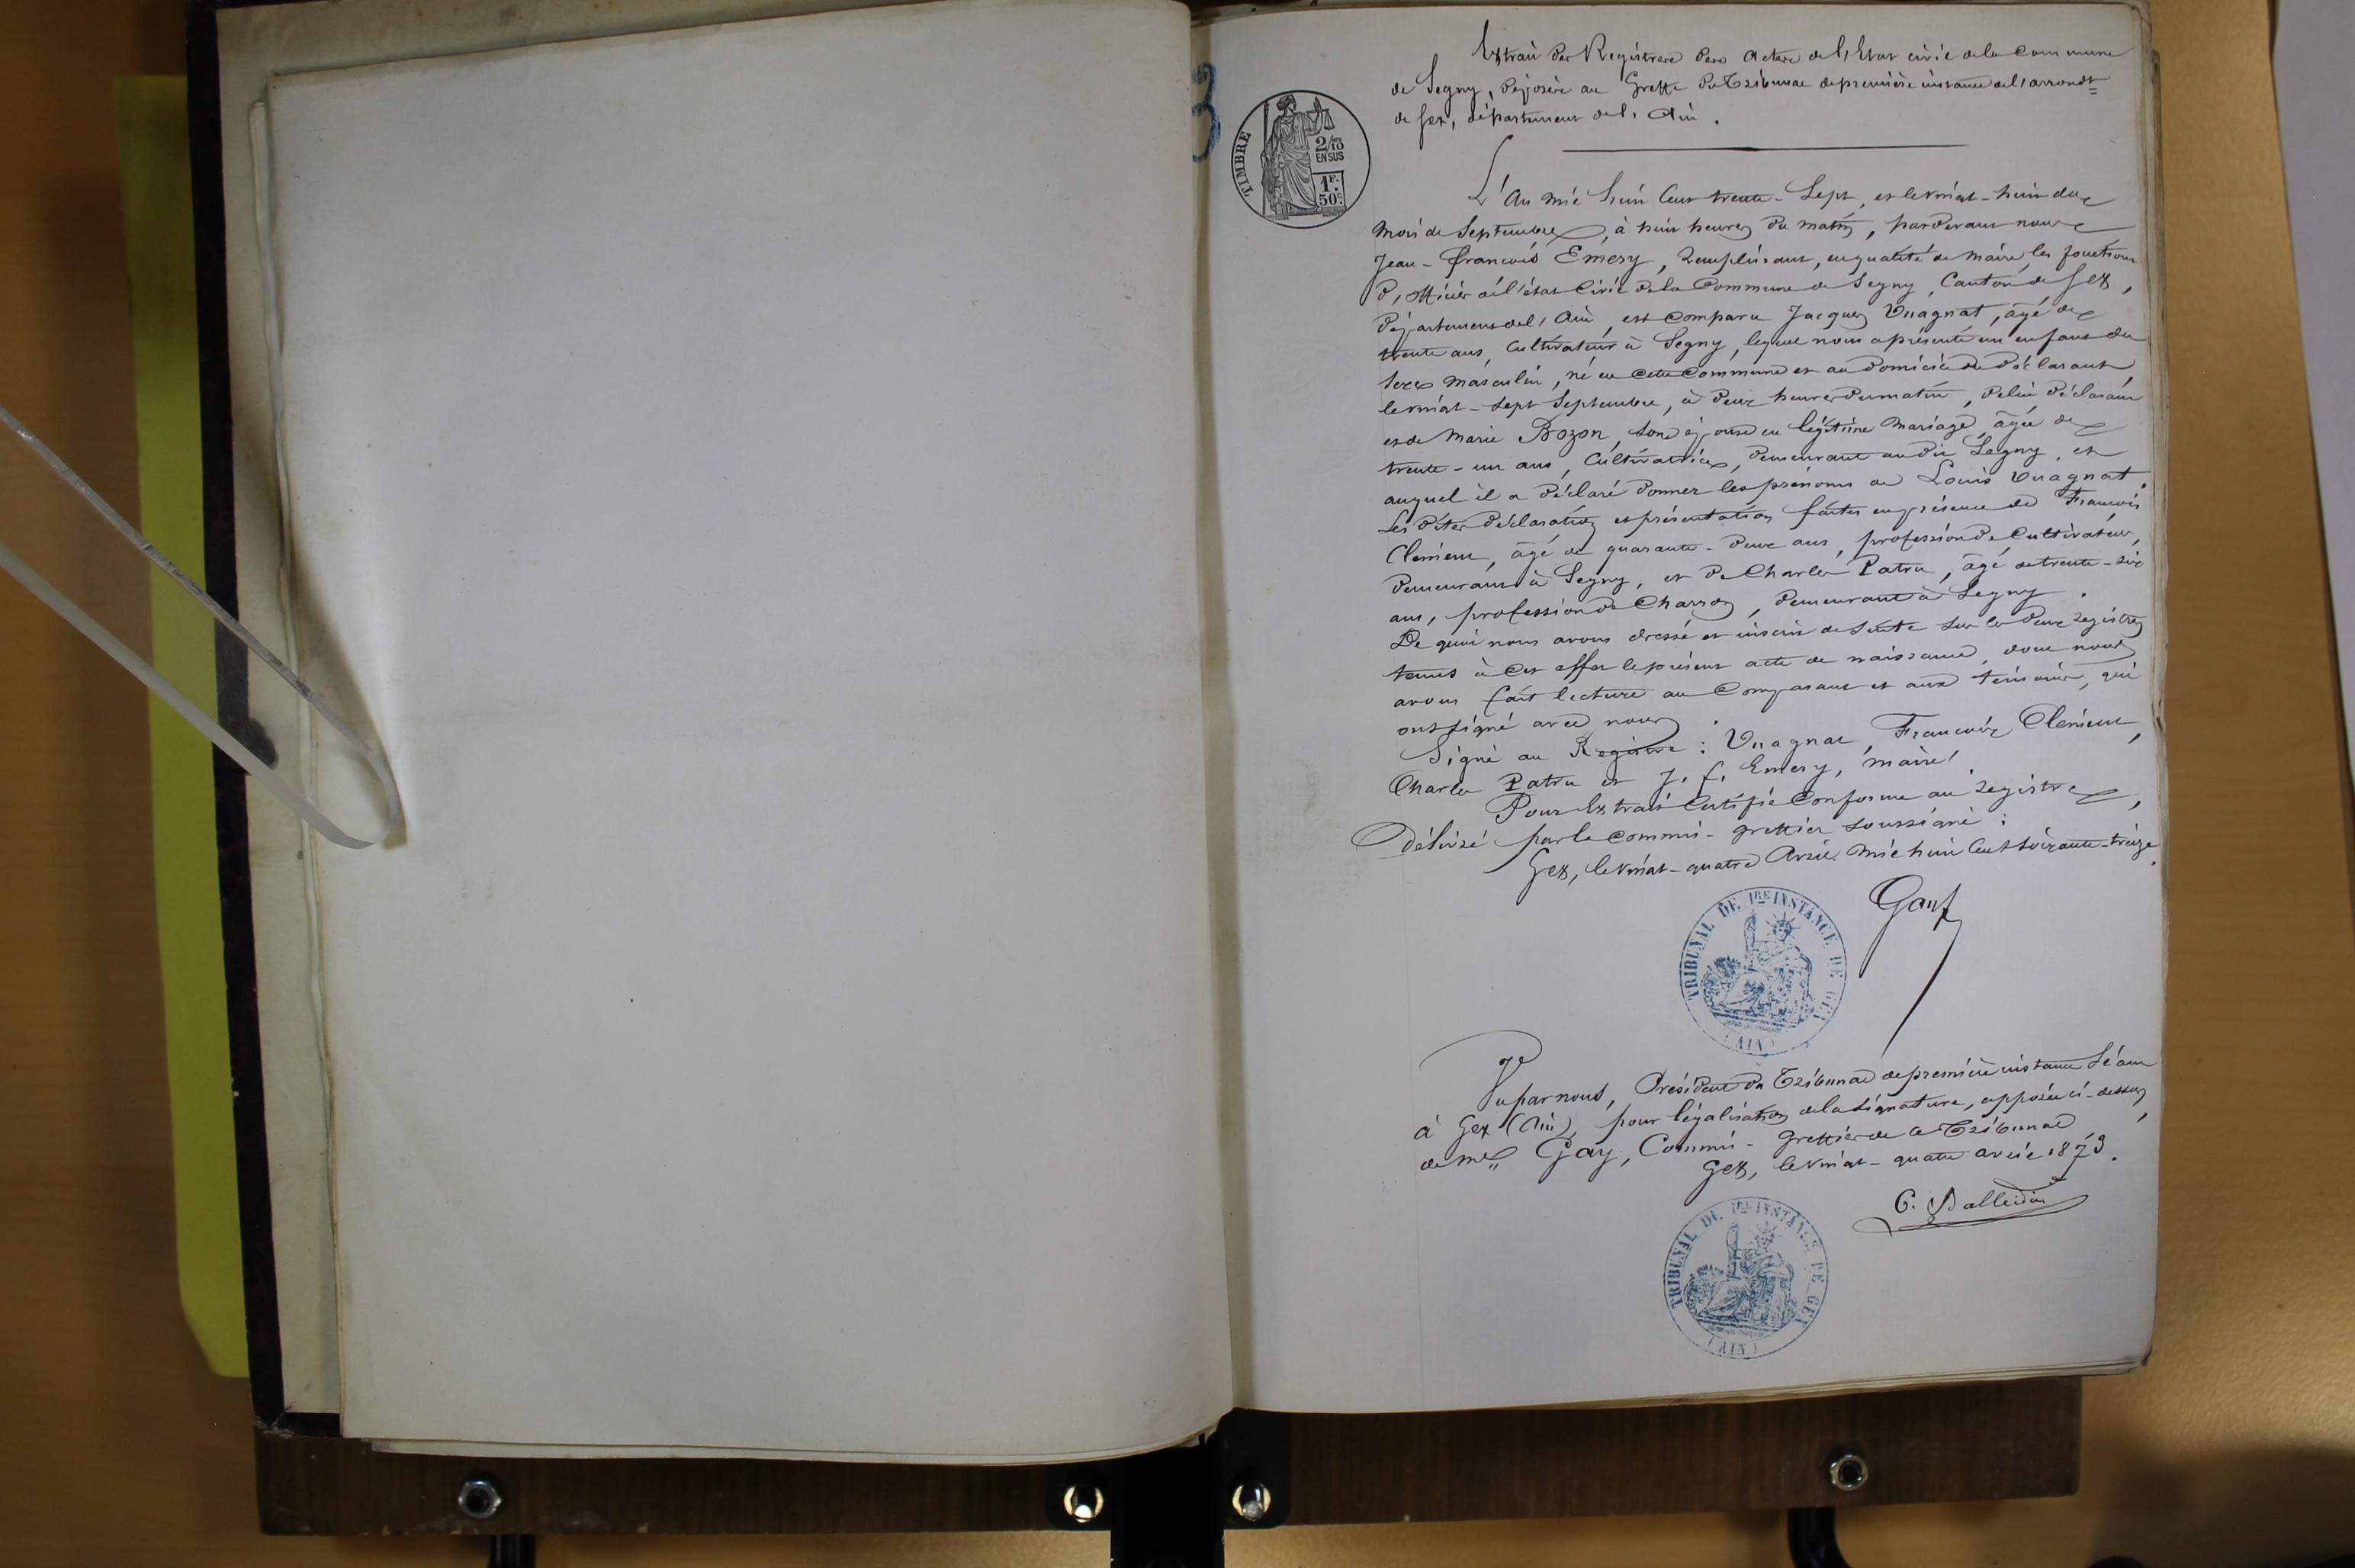 Extrait des Registres des Actes de l'Etat civil de la Commune
de Segny, déposés au Greffe du Tribunal de première instance de l'arrondt
de Gex, département de l'Ain.
TIMBRE
2/10
EN SUS
1F.
50c
L'An mil huit cent trente-Sept, et le vingt-huit du
mois de Septembre, à huit heures du matin, pardevant nous
Jean-françois Emery, Remplissant, en qualité de Maire, les fonctions
d'officier de l'état Civil de la Commune de Segny, Canton de Gex,
département de l'Ain, est Comparu Jacques Vuagnat, âgé de
trente ans, Cultivateur à Segny, lequel nous a présenté un enfant du
sexe masculin, né en cette Commune et au domicile du déclarant,
le vingt-sept Septembre, à deux heures du matin, de lui déclarant
et de Marie Bozon, son épouse en légitime Mariage, âgée de
trente-un ans, Cultivatrice, demeurant au dit Segny, et
auquel il a déclaré donner les prénoms de Louis Vuagnat.
Les dites déclaration et présentation faites en présence de François
Clenieux, âgé de quarante-deux ans, profession de Cultivateur,
demeurant à Segny, et de Charles Patru, âgé de trente-six
ans, profession de Charron, demeurant à Segny.
De quoi nous avons dressé et inscrit de suite sur les deux registres
tenus à cet effet le présent acte de naissance, dont nous
avons fait lecture au Comparant et aux témoins, qui
ont signé avec nous.
Signé au Registre : Vuagnat, François Clenieux,
Charles Patru et J. f. Emery, maire.
Pour Extrait Certifié Conforme au registre,
délivré par le commis-greffier soussigné :
Gex, le vingt-quatre Avril mil huit Cent soixante-treize.
Gay
TRIBUNAL DE 1RE INSTANCE DE GEX
(AIN)
Vu par nous, Président du Tribunal de première instance Séant
à Gex (Ain), pour légalisation de la signature, apposée ci-dessus,
de Me Gay, Commis-greffier de ce Tribunal
Gex, le vingt-quatre avril 1873.
TRIBUNAL DE 1RE INSTANCE DE GEX
(AIN)